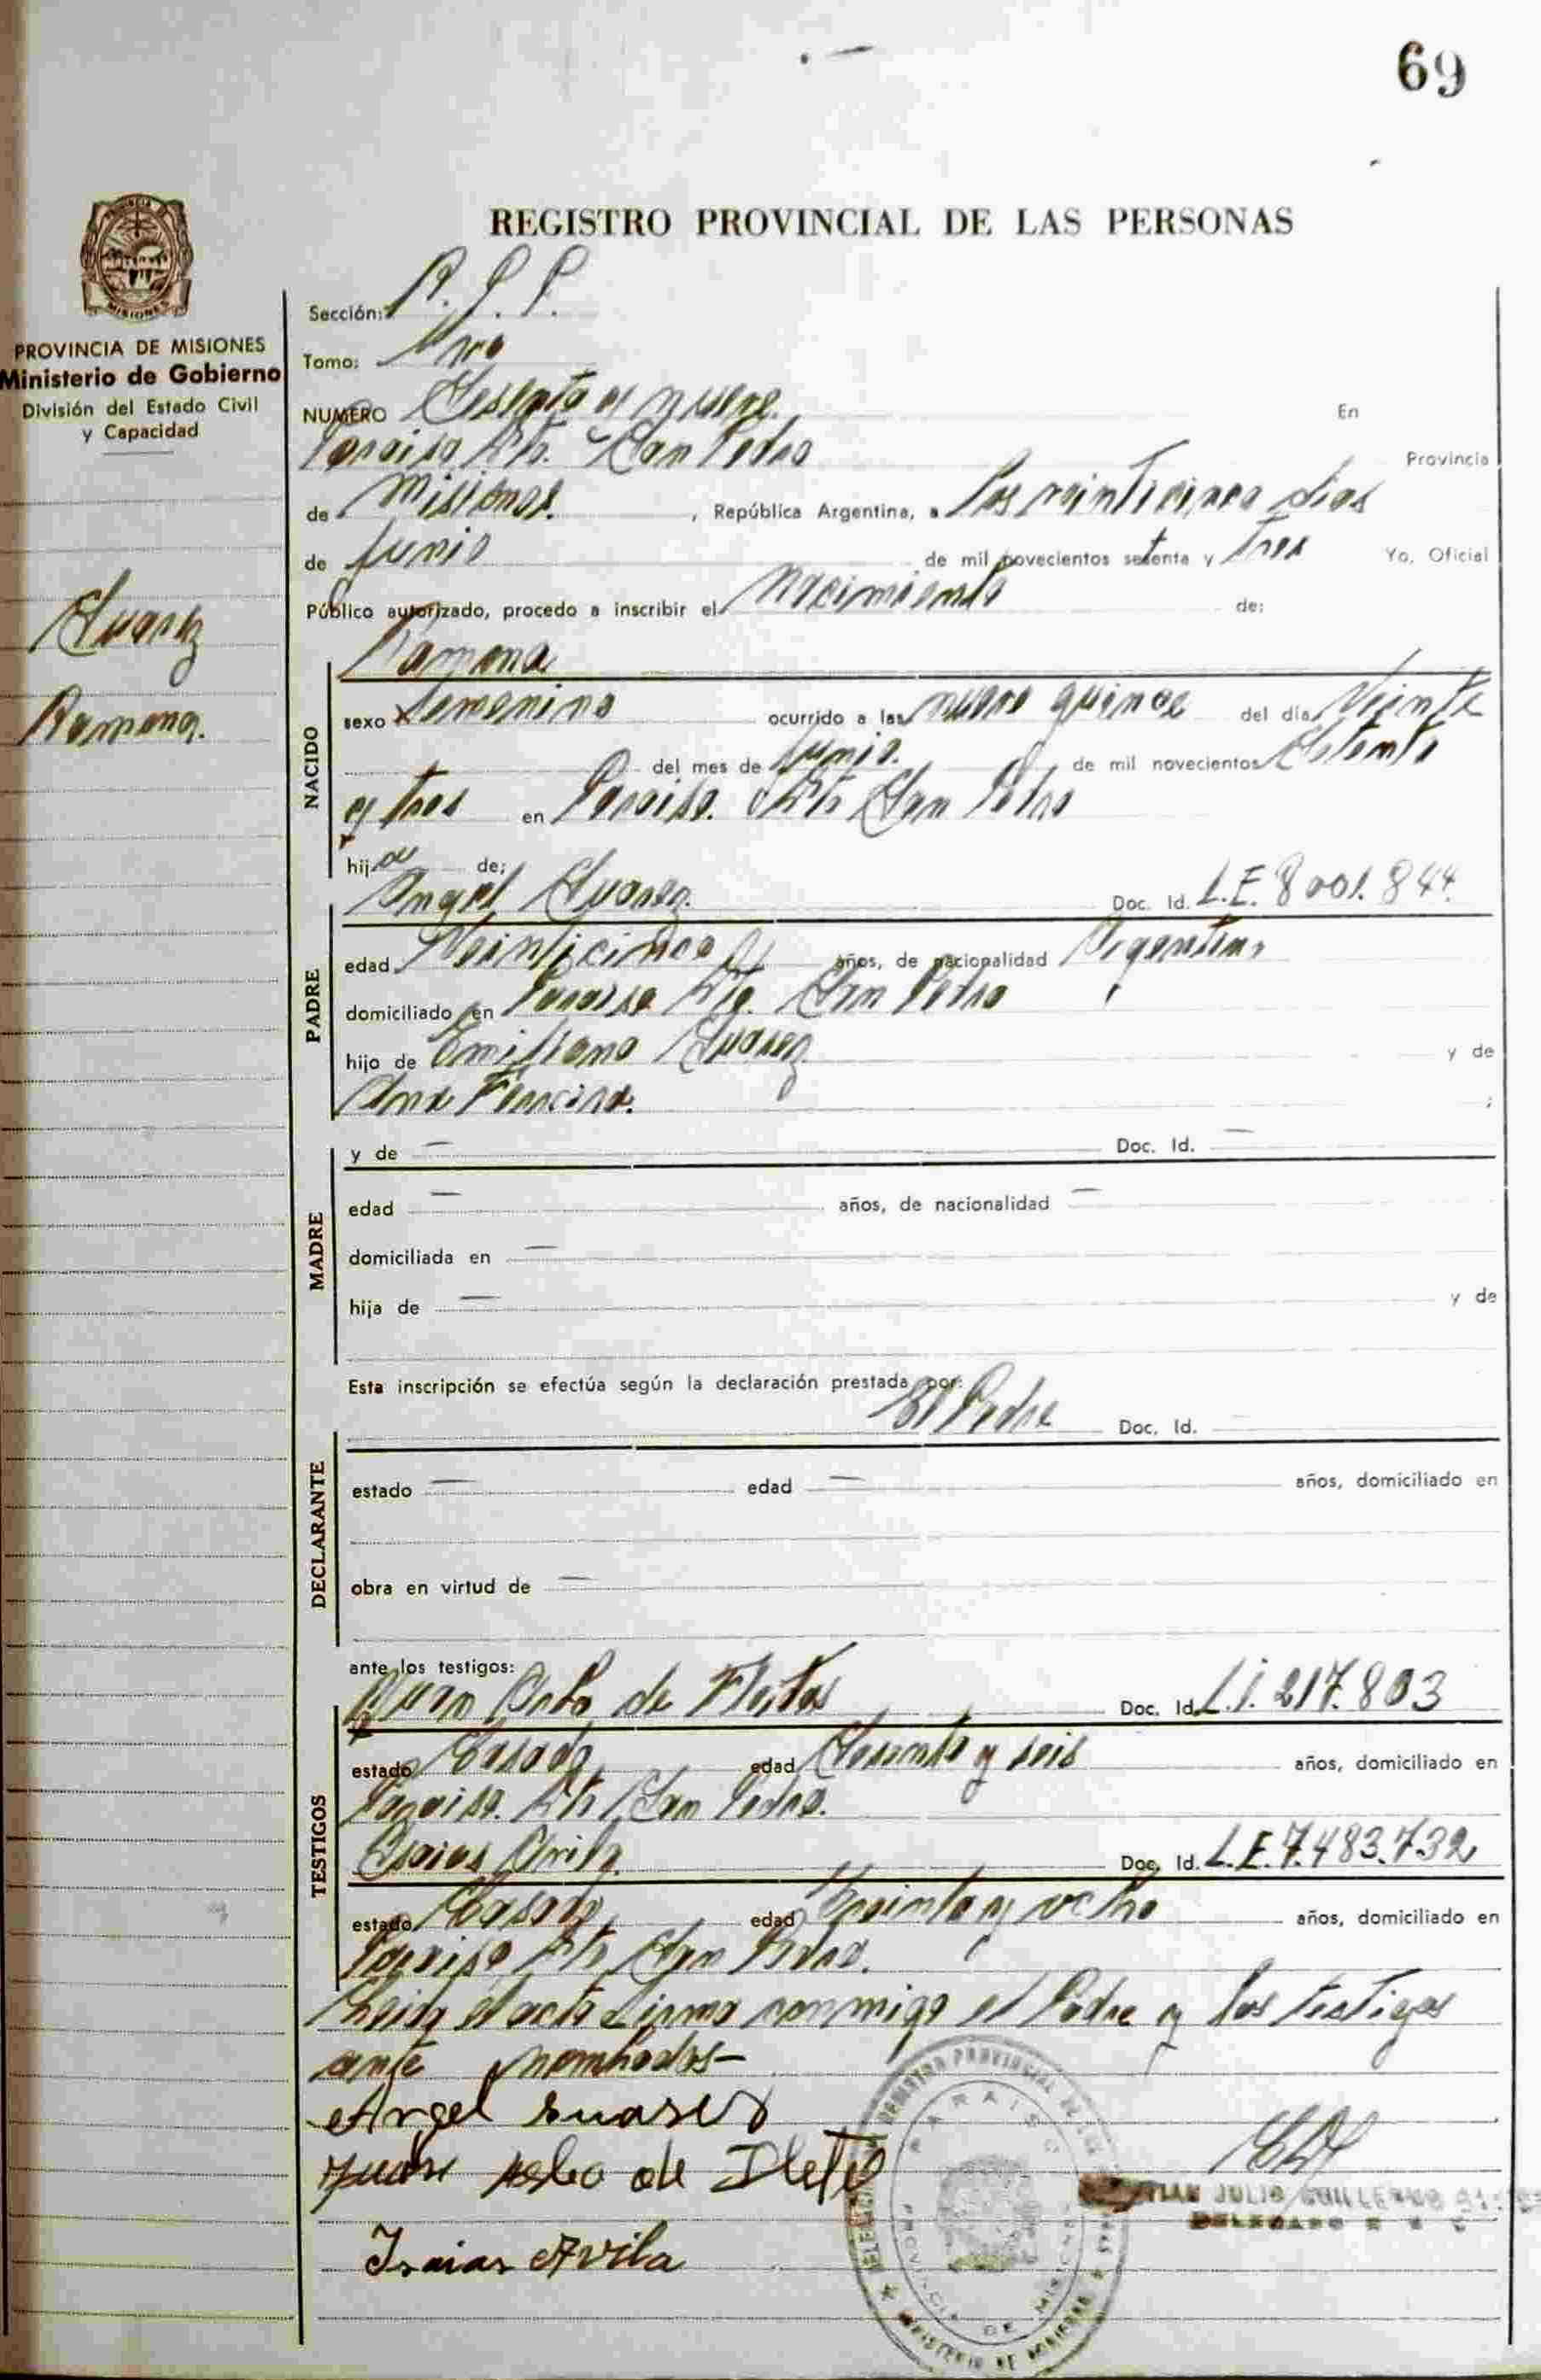 69
REGISTRO PROVINCIAL DE LAS PERSONAS
PROVINCIA DE MISIONES
Ministerio de Gobierno
División del Estado Civil
y Capacidad
Suarez
Ramona.
Sección: R. P. P.
Tomo: Uno
NUMERO Sesenta y nueve. En
Paraiso Dto. San Pedro Provincia
de Misiones. , República Argentina, a los veinticinco dias
de Junio de mil novecientos setenta y tres Yo, Oficial
Público autorizado, procedo a inscribir el Nacimiento de:
NACIDO
Ramona
sexo femenino ocurrido a las nueve quince del día Veinte
del mes de Junio. de mil novecientos Setenta
y tres en Paraiso. Dto San Pedro
hija de:
PADRE
Angel Suarez. Doc. Id. L.E. 8001.844.
edad Veinticinco años, de nacionalidad Argentina
domiciliado en Paraiso Dto. San Pedro
hijo de Emiliano Suarez y de
Ana Ferreira. ;
MADRE
y de — Doc. Id. —
edad — años, de nacionalidad —
domiciliada en —
hija de — y de
Esta inscripción se efectúa según la declaración prestada por:
El Padre Doc. Id.
DECLARANTE
estado — edad — años, domiciliado en
obra en virtud de —
ante los testigos:
TESTIGOS
de Doc. Id. L.E. 217.803
estado Casado edad Sesenta y seis años, domiciliado en
Paraiso. Dto San Pedro.
Isaias Avila. Doc. Id. L.E. 7.483.732
estado Casado edad Treinta y ocho años, domiciliado en
Paraiso Dto San Pedro.
Leida el acta firma conmigo el Padre y los testigos
ante nombados—
Angel Suares
de
Isaias Avila
REGISTRO PROVINCIAL DE LAS
PARAISO
PROVINCIA DE MISIONES
MINISTERIO DE GOBIERNO
JULIO
DELEGADO